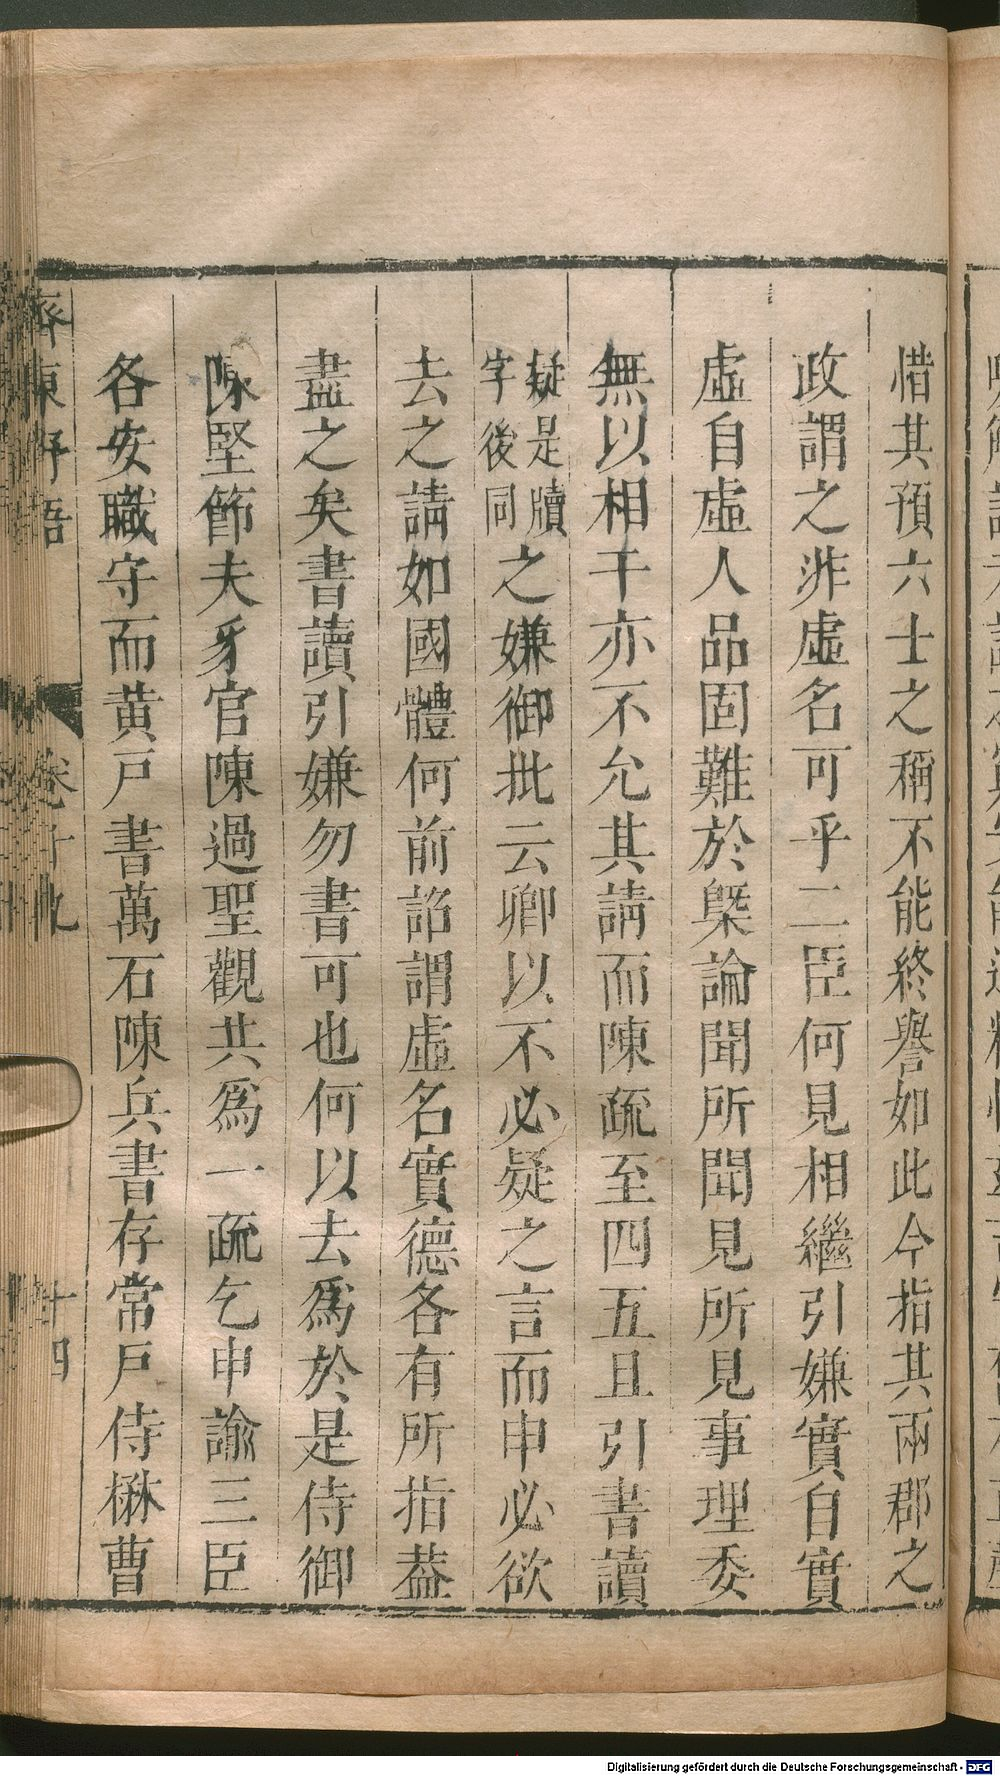 惜其預六士之稱不能終譽如此今指其兩郡之
政謂之非虛名可乎二臣何見相繼引嫌實自實
虛自虛人品固難於槩論聞所聞見所見事理委
無以相干亦不允其請而陳疏至四五且引書讀
疑是牘
字後同
之嫌御批云卿以不必疑之言而申必欲
去之請如國體何前詔謂虛名實德各有所指葢
盡之矣書讀引嫌勿書可也何以去爲於是侍御
陳堅節夫豸官陳過聖觀共爲一疏乞申諭三臣
各安職守而黄戸書萬石陳兵書存常戸侍楙曹
齊東野語 卷十九 十四
Digitalisierung gefördert durch die Deutsche Forschungsgemeinschaft - DFG